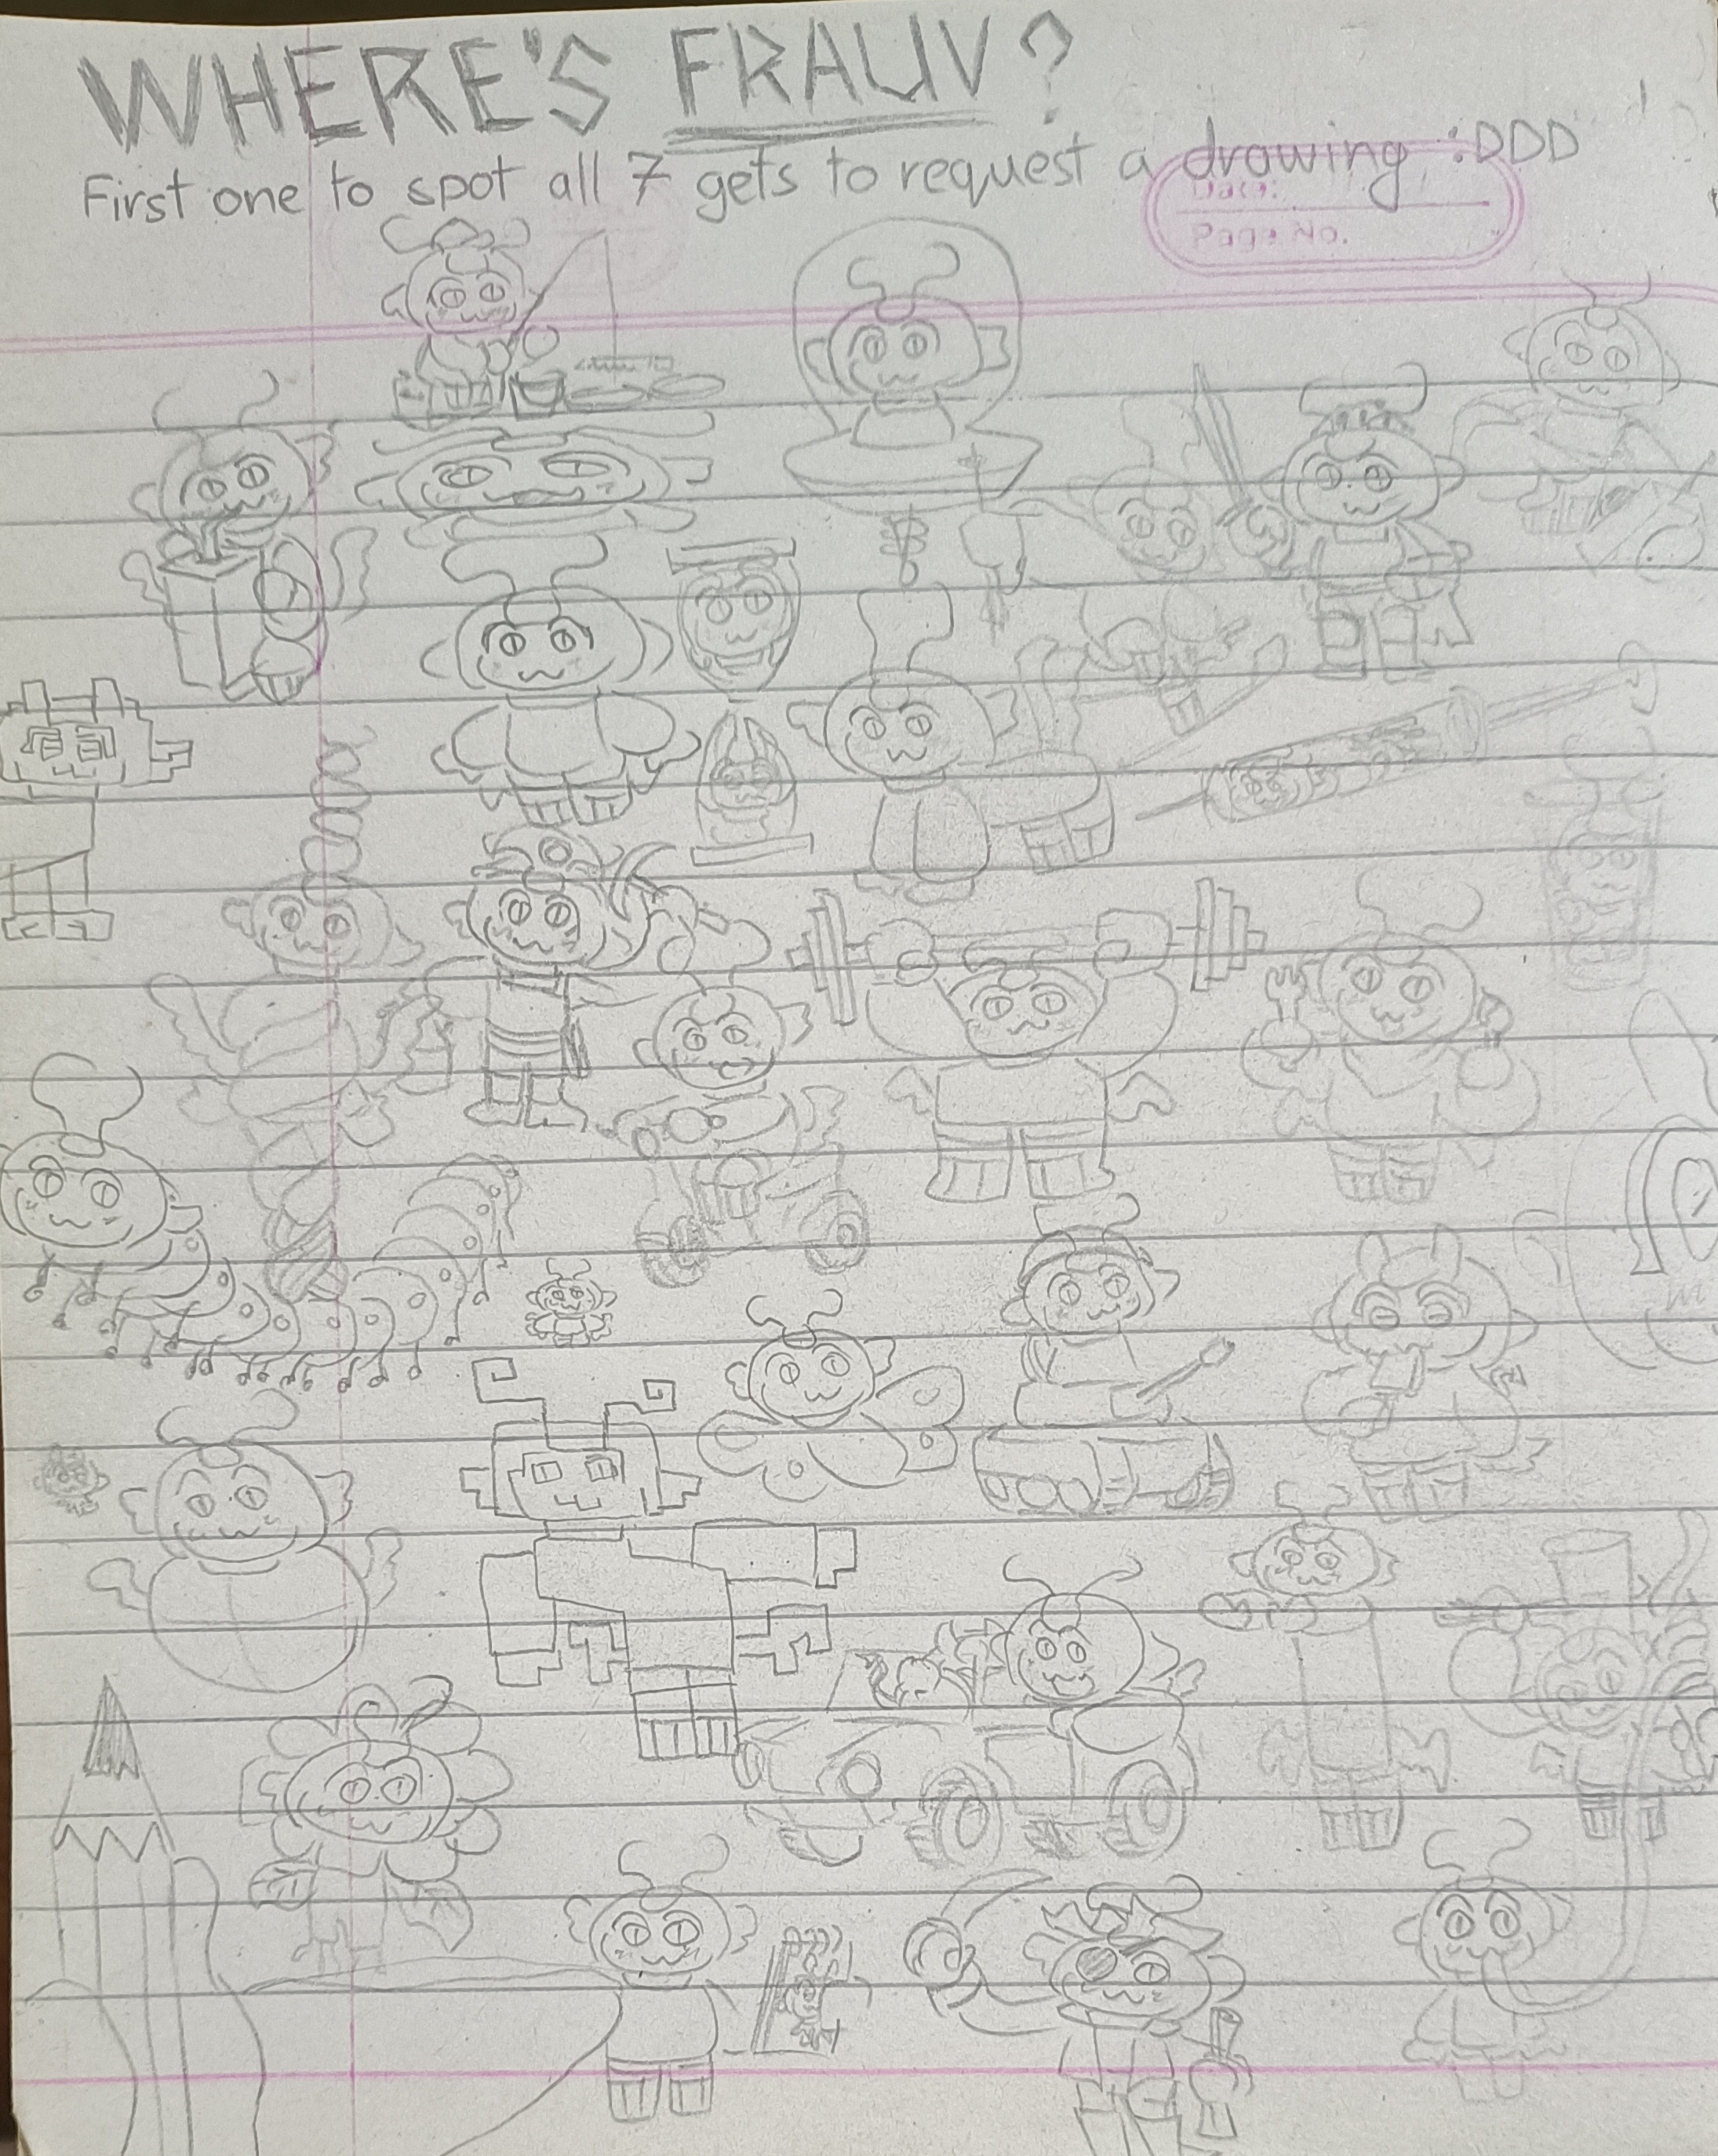 WHERE'S FRAUV?
First one to spot all 7 gets to request a drawing :DDD
Date:
Page No.